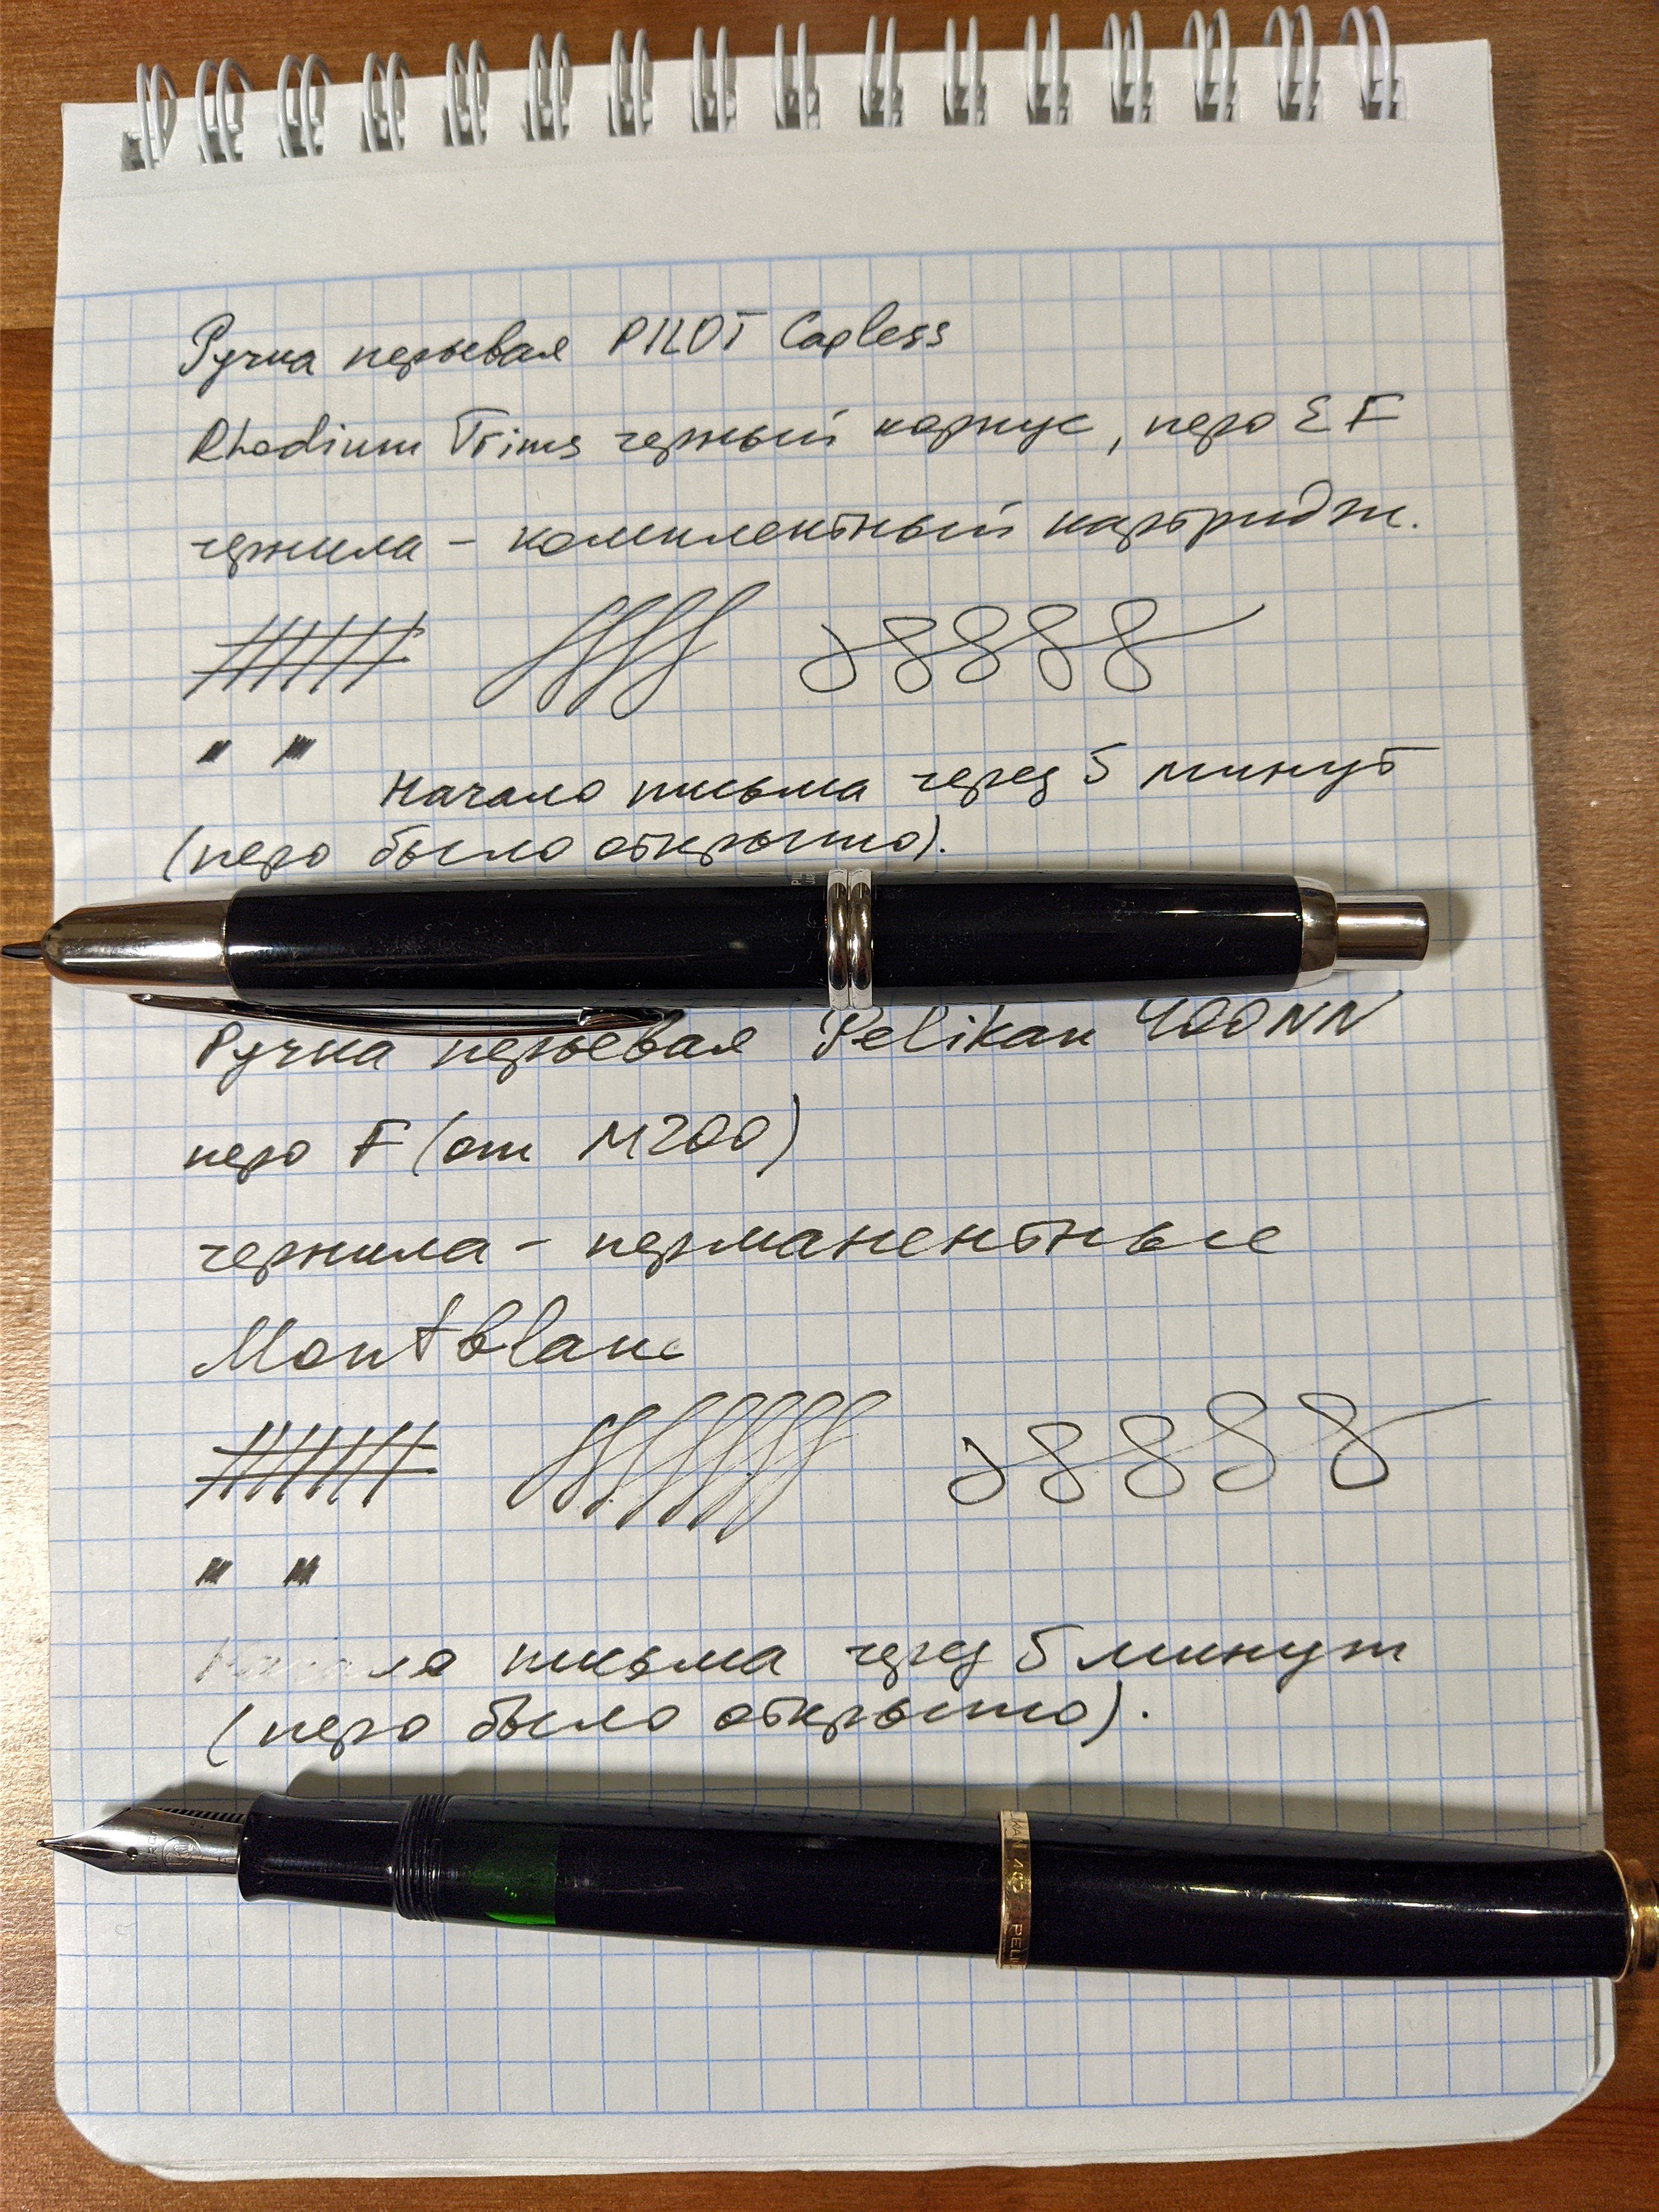 Ручка перьевая PILOT Capless
Rhodium Trims черный корпус, перо EF
чернила - комплектный картридж.
Начало письма через 5 минут
(перо было открыто).
Ручка перьевая Pelikan 400NN
перо F (от M200)
чернила - перманентные
Montblanc
Начало письма через 5 минут
(перо было открыто).